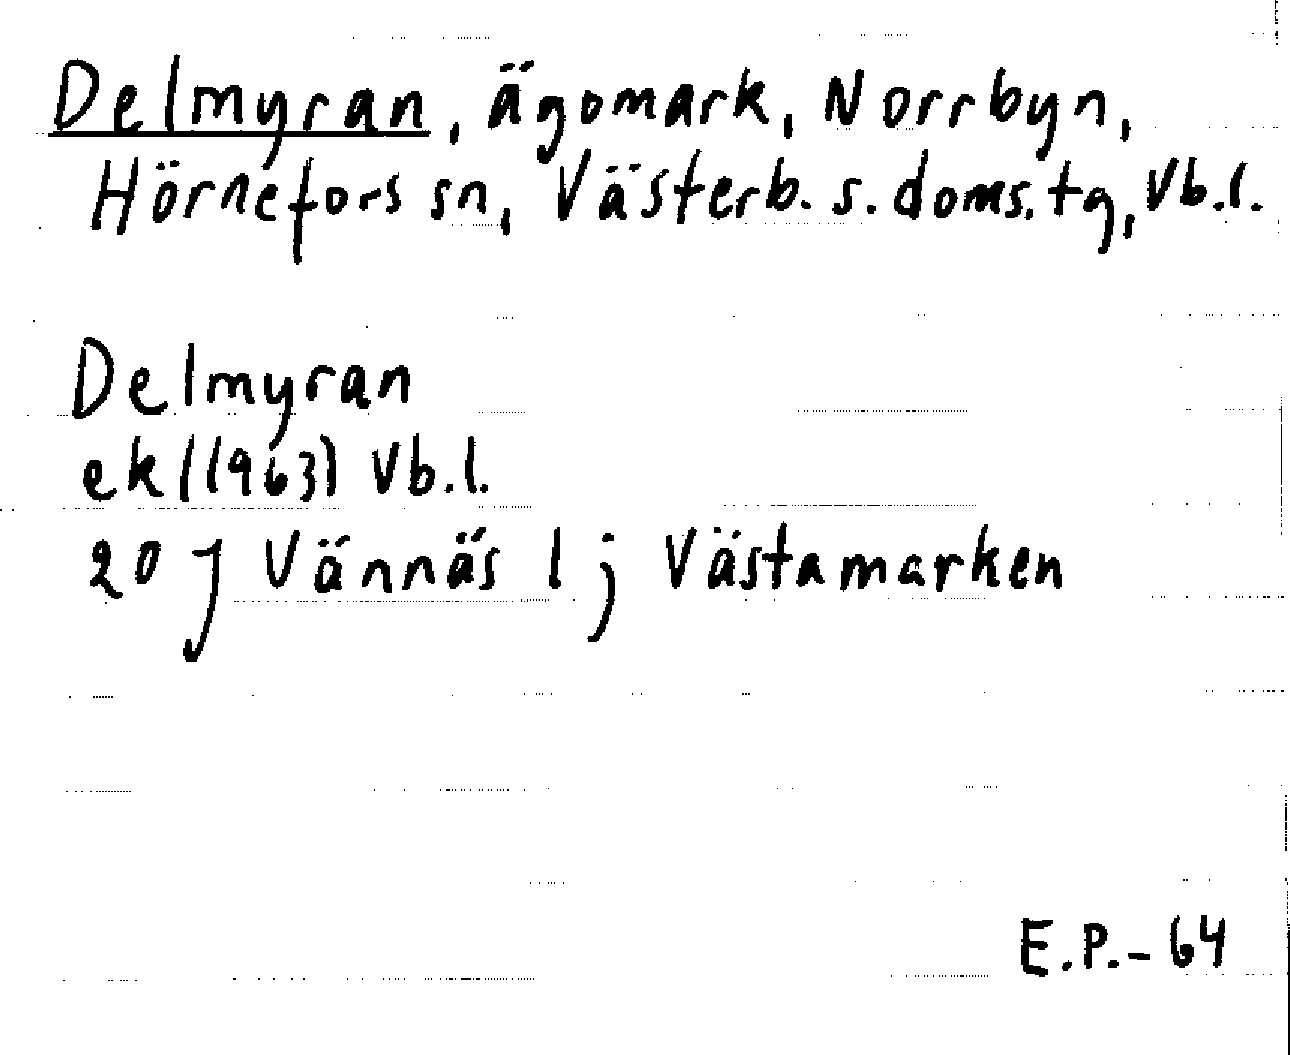 Delmyran, ägomark, Norrbyn,
Hörnefors sn, Västerb. s. doms. tg, Vb.l.
Delmyran
ek (1963) Vb.l.
20 J Vännäs 1 j Västamarken
E.P.-64